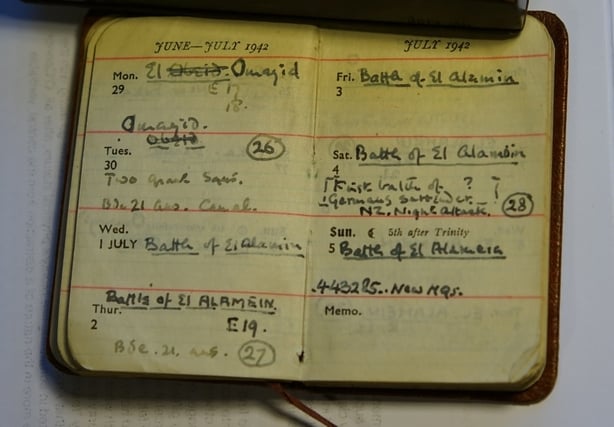 JUNE—JULY 1942
Mon. El Obeid. Omayid
29
E 17
18.
Omayid.
Obeid.
Tues. 26
30
Two Squns.
Wed.
1 JULY Battle of El Alamin
Battle of El ALAMEIN.
Thur.
2 E19.
27
JULY 1942
Fri. Battle of El Alamin
3
Sat. Battle of El Alamin
4
First battle of ?
Germans surrender
NZ. Night attack. 28
Sun. ☾ 5th after Trinity
5 Battle of El Alamein
443285. New HQs.
Memo.